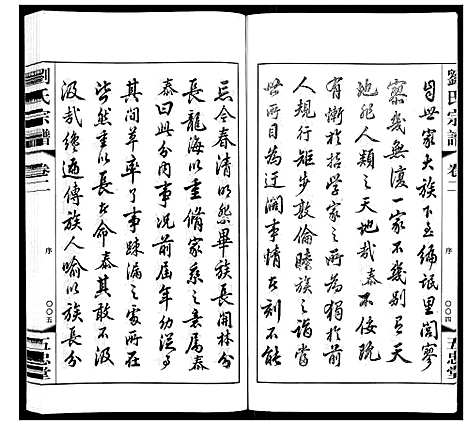 劉氏宗譜
卷二
序
〇〇四
五忠堂
自世家大族下至編氓里閭寥
寥幾無復一家不幾別有天
地非人類之天地哉泰不佞既
有慚於哲學家之所為獨於前
人規行矩步敦倫睦族之詣當
世所目為迂濶事情在刻不能
忘今春清明祭畢族長開林分
長龍海以重修家乘之意属泰
泰曰此分內事况前屆年幼從事
其間草率了事踈漏之處所在
皆然重以長在命泰其敢不汲
汲哉繼通傳族人喻以族長分
劉氏宗譜
卷二
序
〇〇五
五忠堂